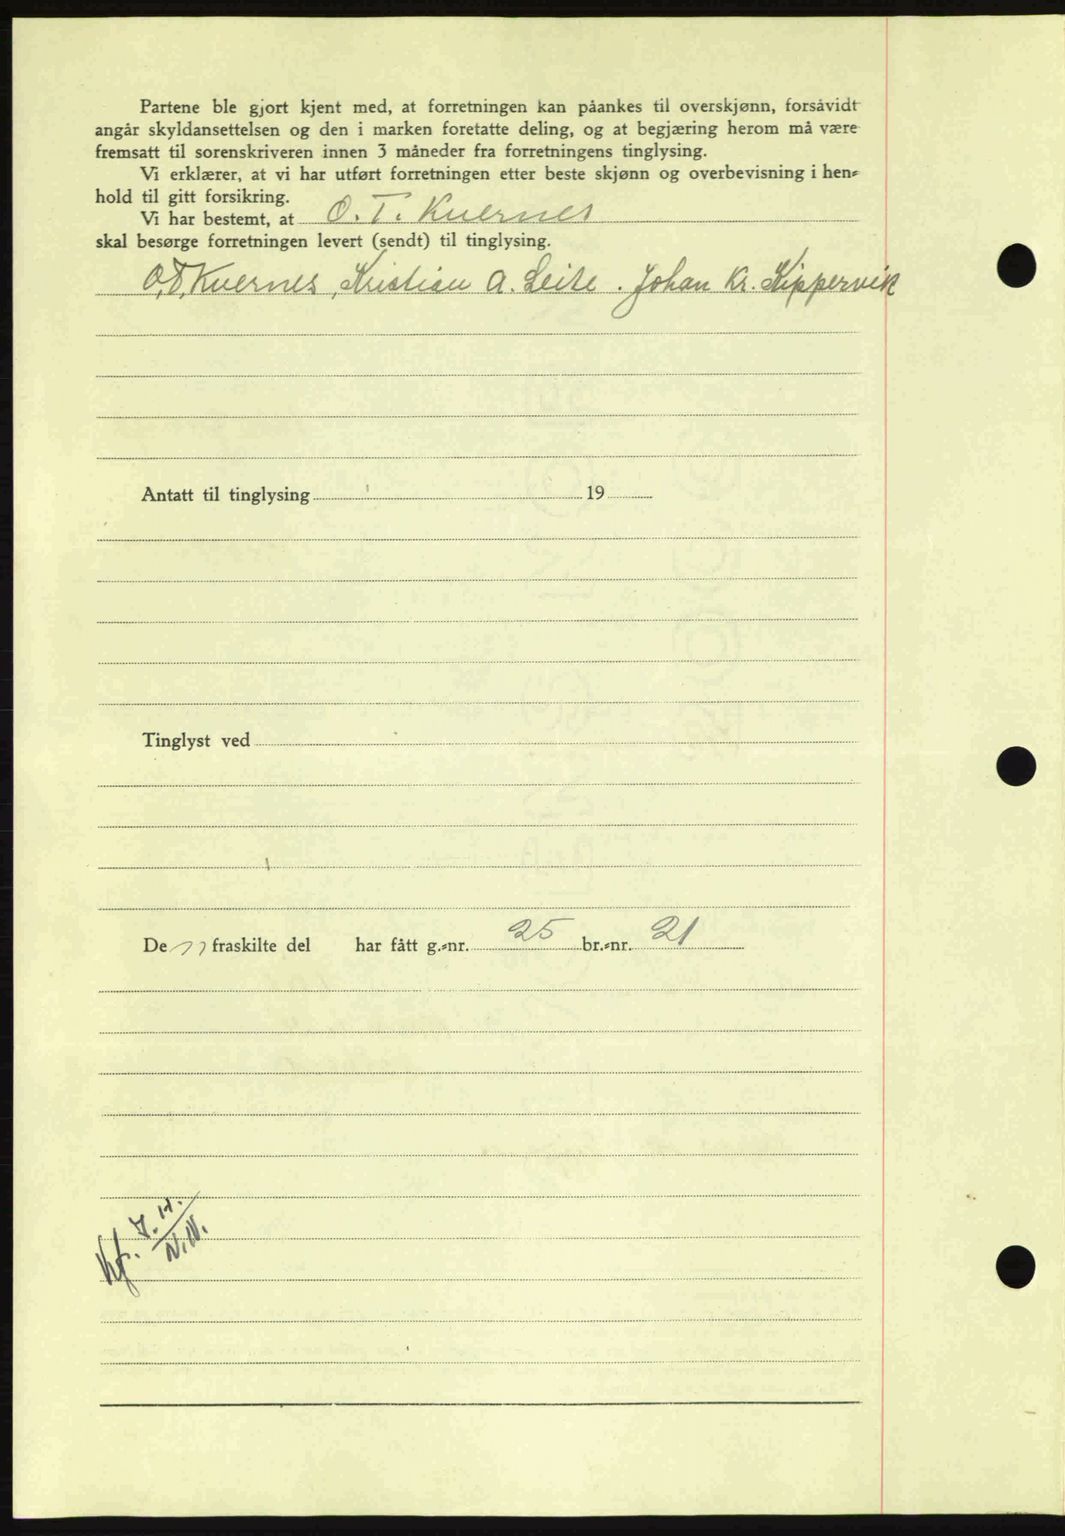 Partene ble gjort kjent med, at forretningen kan påankes til overskjønn, forsåvidt
angår skyldansettelsen og den i marken foretatte deling, og at begjæring herom må være
fremsatt til sorenskriveren innen 3 måneder fra forretningens tinglysing.
Vi erklærer, at vi har utført forretningen etter beste skjønn og overbevisning i hen-
hold til gitt forsikring.
Vi har bestemt, at O. T. Kvernes
skal besørge forretningen levert (sendt) til tinglysing.
O. T. Kvernes, Kristian A. Leite. Johan Kr. Skippervik
Antatt til tinglysing 19
Tinglyst ved
De fraskilte del har fått g.-nr. 25 br.-nr. 21
Kf. J.H.
N.N.